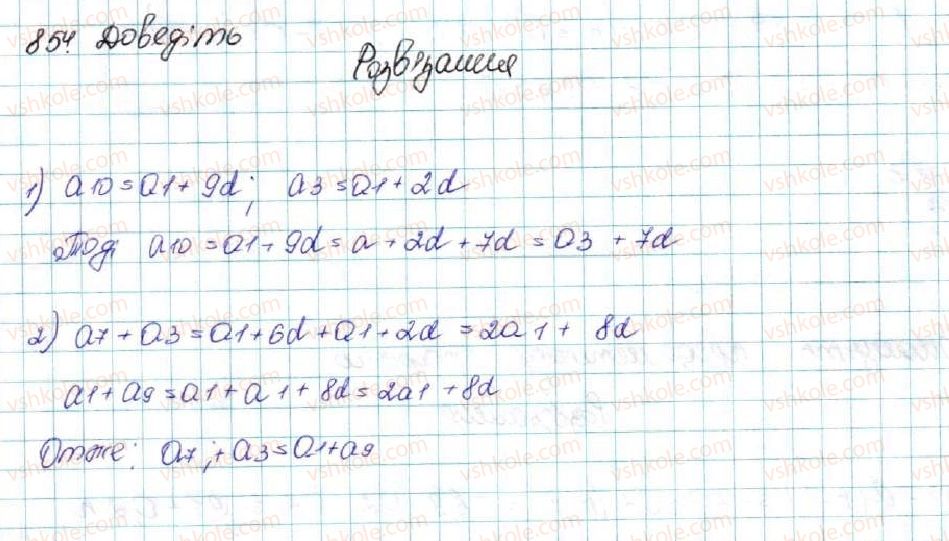 854. Доведіть
Розв'язання
1) a10 = a1 + 9d; a3 = a1 + 2d
Тоді a10 = a1 + 9d = a + 2d + 7d = a3 + 7d
2) a7 + a3 = a1 + 6d + a1 + 2d = 2a1 + 8d
a1 + a9 = a1 + a1 + 8d = 2a1 + 8d
Отже: a7 + a3 = a1 + a9